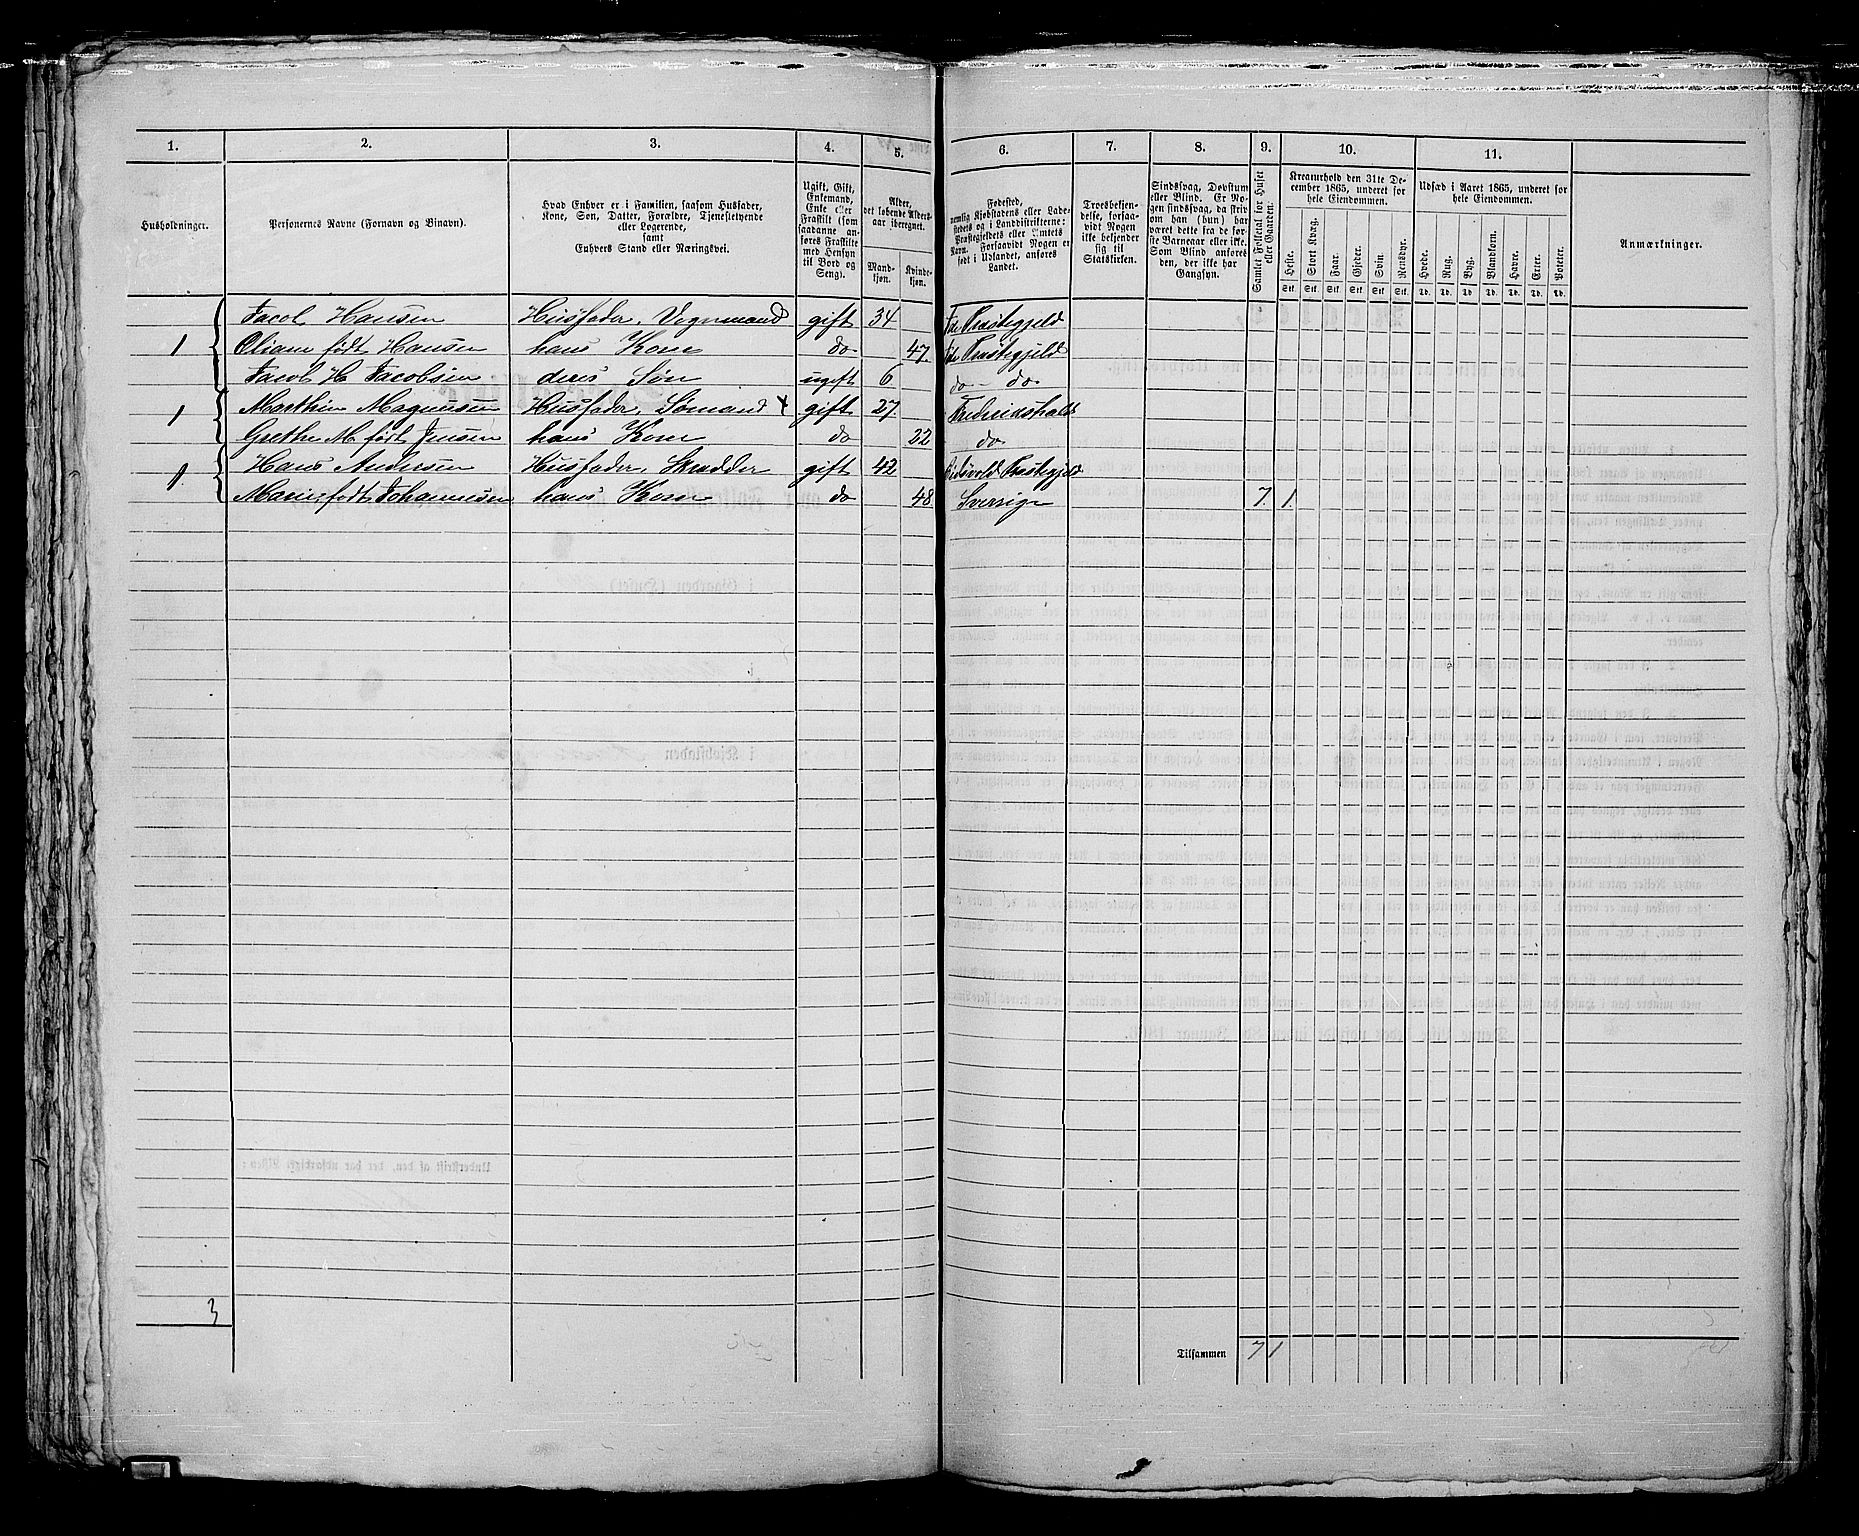 1. 2. 3. 4. 5. 6. 7. 8. 9. 10. 11.
Husholdninger.
Personernes Navne (Fornavn og Binavn).
Hvad Enhver er i Familien, saasom Husfader,
Kone, Søn, Datter, Forældre, Tjenestetyende
eller Logerende,
samt
Enhvers Stand eller Næringsvei.
Ugift, Gift,
Enkemand,
Enke eller
Fraskilt (som
saadanne an-
føres Fraskilte
med Hensyn
til Bord og
Seng).
Alder,
det løbende Alders-
aar iberegnet.
Mand-
kjøn.
Kvinde-
kjøn.
Fødested,
nemlig Kjøbstadens eller Lade-
stedets og i Landdistrikterne:
Præstegjeldets eller Amtets
Navn. Forsaavidt Nogen er
født i Udlandet, anføres
Landet.
Troesbekjen-
delse, forsaa-
vidt Nogen
ikke bekjender
sig til
Statskirken.
Sindssvag, Døvstum
eller Blind. Er No-
gen sindssvag, da skriv
om han (hun) har
været dette fra de før-
ste Barneaar eller ikke.
Som Blind anføres
den, der ikke har
Gangsyn.
Samlet Folketal for Huset
eller Gaarden.
Kreaturhold den 31te De-
cember 1865, underet for
hele Eiendommen.
Heste. Stort Kvæg. Faar. Gjeder. Svin. Rensdyr.
Stk. Stk. Stk. Stk. Stk. Stk.
Udsæd i Aaret 1865, underet for
hele Eiendommen.
Hvede. Rug. Byg. Blandkorn. Havre. Erter. Poteter.
Td. Td. Td. Td. Td. Td. Td.
Anmærkninger.
Jacob Hansen Husfader, Vognmand gift 34 Præstegjeld
1 Oliane født Hansen hans Kone do 47. Præstegjeld
Jacob H Jacobsen deres Søn ugift 6 do - do
1 Marthin Magnussen Husfader, Sømand gift 27 Fredrikshald
Grethe M. født Jensen hans Kone do 22 do
1. Hans Andersen Husfader, Skrædder gift 42 Eidsvold Præstegjeld
Marie født Johannesen hans Kone do 48 Sverrige 7. 1.
3
Tilsammen 7 1